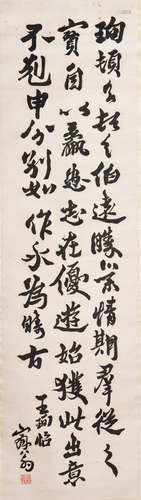 珣頓首頓首伯遠勝業情期羣從之
寶自以羸患志在優遊始獲此出意
不剋申分別如昨永為疇古
王珣帖
翁